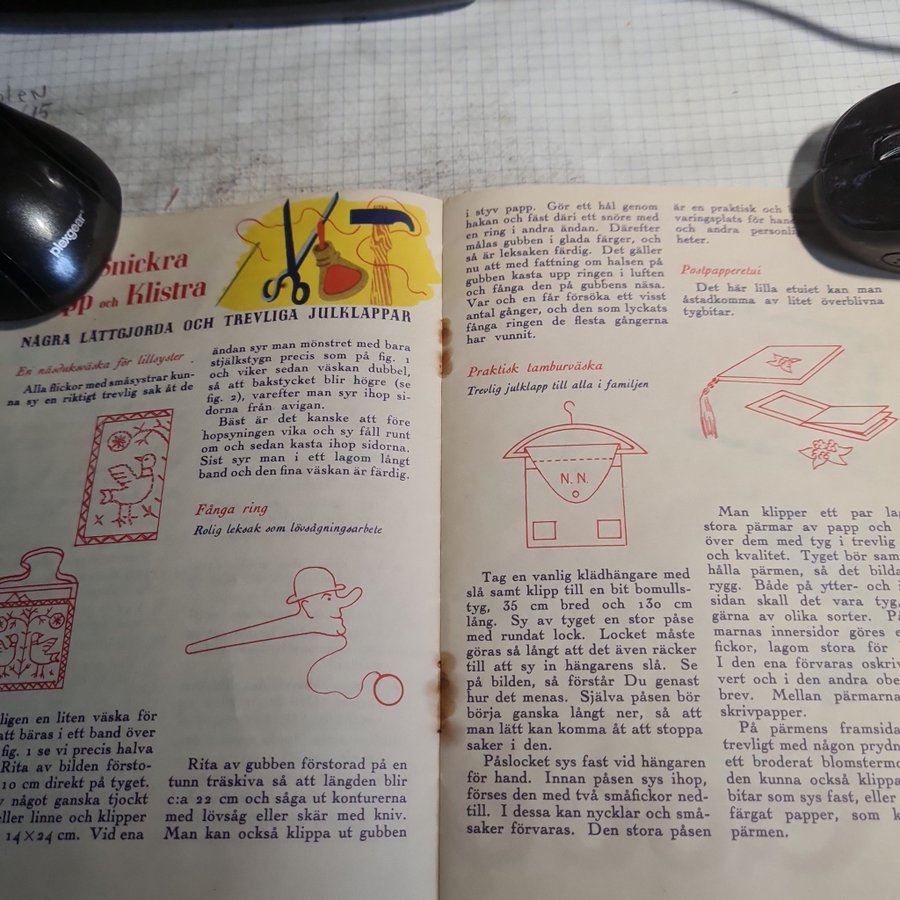 plexgear
Snickra
och Klistra
NÅGRA LÄTTGJORDA OCH TREVLIGA JULKLAPPAR
En näsduksväska för lillsyster
Alla flickor med småsystrar kun-
na sy en riktigt trevlig sak åt de
ligen en liten väska för
att bäras i ett band över
fig. 1 se vi precis halva
Rita av bilden försto-
10 cm direkt på tyget.
något ganska tjockt
eller linne och klipper
14×24 cm. Vid ena
ändan syr man mönstret med bara
stjälkstygn precis som på fig. 1
och viker sedan väskan dubbel,
så att bakstycket blir högre (se
fig. 2), varefter man syr ihop si-
dorna från avigan.
Bäst är det kanske att före
hopsyningen vika och sy fåll runt
om och sedan kasta ihop sidorna.
Sist syr man i ett lagom långt
band och den fina väskan är färdig.
Fånga ring
Rolig leksak som lövsågningsarbete
Rita av gubben förstorad på en
tunn träskiva så att längden blir
c:a 22 cm och såga ut konturerna
med lövsåg eller skär med kniv.
Man kan också klippa ut gubben
i styv papp. Gör ett hål genom
hakan och fäst däri ett snöre med
en ring i andra ändan. Därefter
målas gubben i glada färger, och
så är leksaken färdig. Det gäller
nu att med fattning om halsen på
gubben kasta upp ringen i luften
och fånga den på gubbens näsa.
Var och en får försöka ett visst
antal gånger, och den som lyckats
fånga ringen de flesta gångerna
har vunnit.
Praktisk tamburväska
Trevlig julklapp till alla i familjen
N. N.
Tag en vanlig klädhängare med
slå samt klipp till en bit bomulls-
tyg, 35 cm bred och 130 cm
lång. Sy av tyget en stor påse
med rundat lock. Locket måste
göras så långt att det även räcker
till att sy in hängarens slå. Se
på bilden, så förstår Du genast
hur det menas. Själva påsen bör
börja ganska långt ner, så att
man lätt kan komma åt att stoppa
saker i den.
Påslocket sys fast vid hängaren
för hand. Innan påsen sys ihop,
förses den med två småfickor ned-
till. I dessa kan nycklar och små-
saker förvaras. Den stora påsen
är en praktisk och
varingsplats för
och andra
heter.
Postpapperetui
Det här lilla etuiet kan man
åstadkomma av litet överblivna
tygbitar.
Man klipper ett par
stora pärmar av papp och
över dem med tyg i trevlig
och kvalitet. Tyget bör
hålla pärmen, så det
rygg. Både på ytter- och
sidan skall det vara tyg,
gärna av olika sorter.
marnas innersidor göres
fickor, lagom stora för
I den ena förvaras
vert och i den andra
brev. Mellan pärmarna
skrivpapper.
På pärmens framsida
trevligt med någon
ett broderat
den kunna också klippa
bitar som sys fast, eller
färgat papper, som
pärmen.